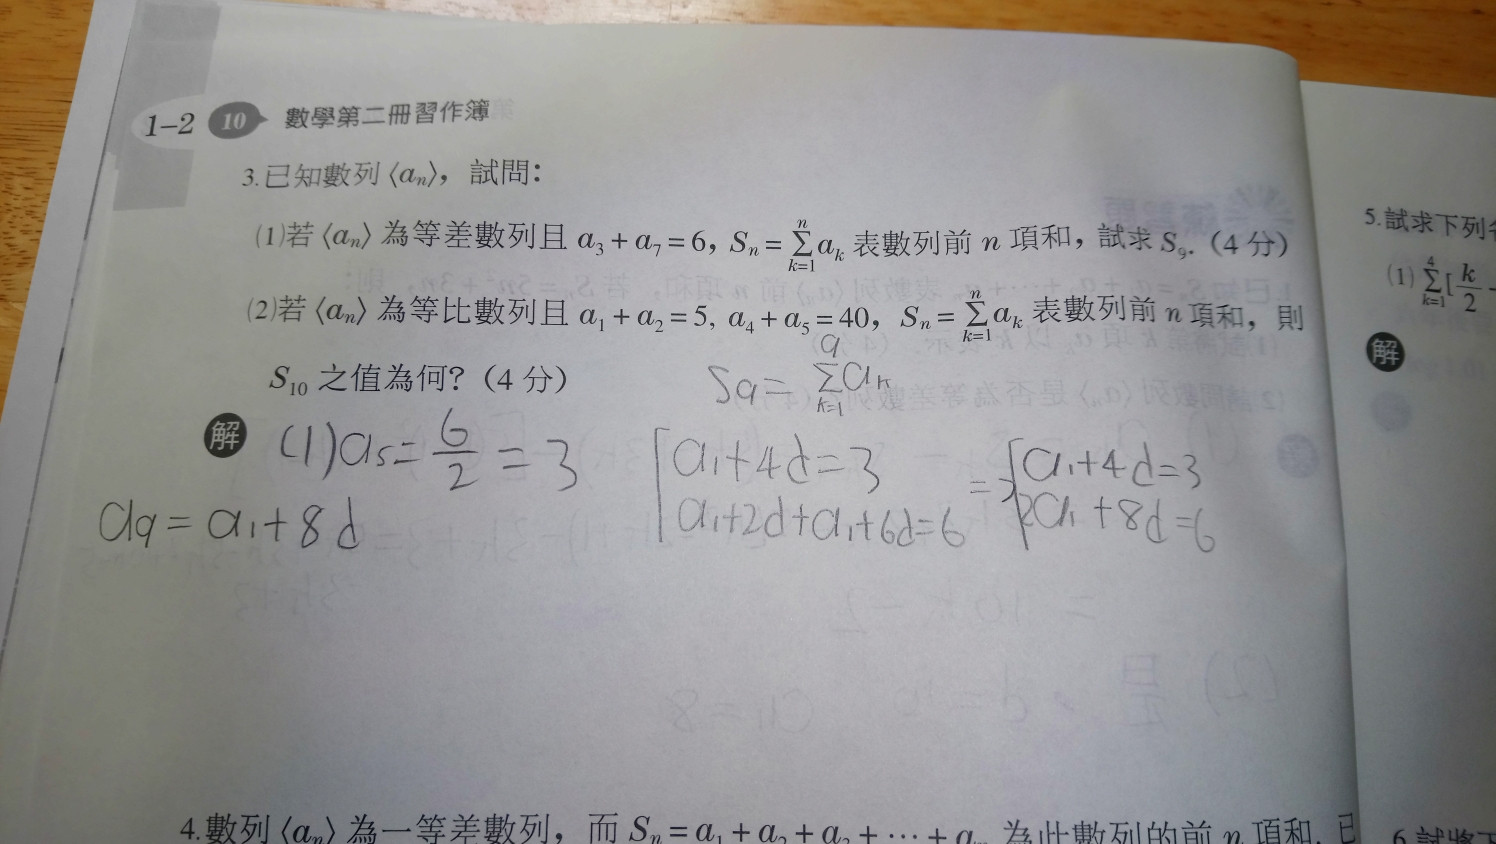 1-2 10 數學第二冊習作簿
3.已知數列⟨aₙ⟩，試問：
(1)若⟨aₙ⟩為等差數列且 a₃+a₇=6，Sₙ=∑ₖ₌₁ⁿ aₖ 表數列前 n 項和，試求 S₉.（4 分）
(2)若⟨aₙ⟩為等比數列且 a₁+a₂=5, a₄+a₅=40，Sₙ=∑ₖ₌₁ⁿ aₖ 表數列前 n 項和，則
S₁₀ 之值為何？（4 分）
S₉=∑ₖ₌₁⁹ aₖ
解 (1) a₅=6/2=3
a₁+4d=3
a₁+2d+a₁+6d=6
=> a₁+4d=3
2a₁+8d=6
a₉=a₁+8d
4.數列⟨aₙ⟩為一等差數列，而 Sₙ=a₁+a₂+a₃+⋯+aₙ 為此數列的前 n 項和，已
5.試求下列
(1) ∑ₖ₌₁⁴[k/2
解
6.試將下